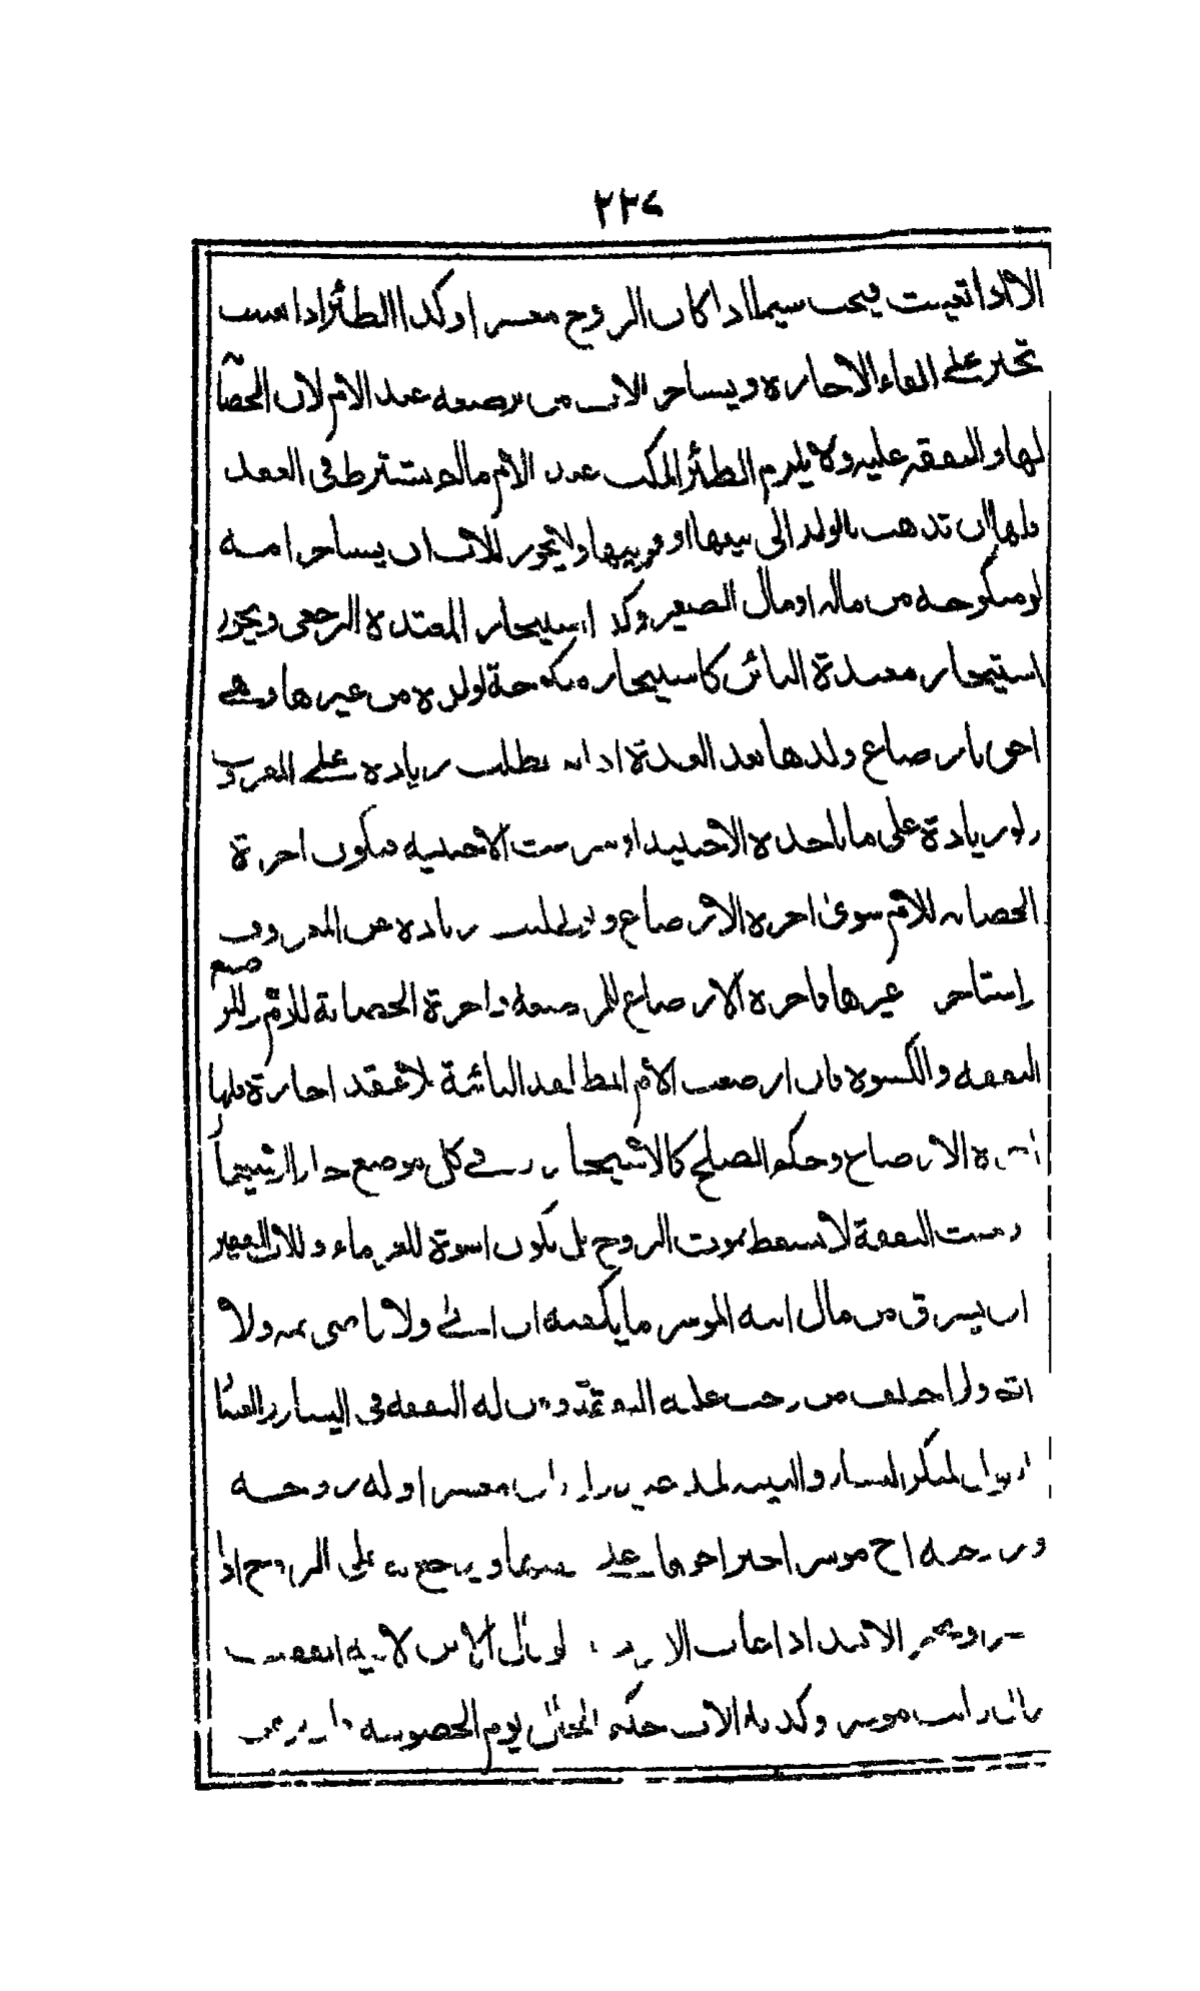 ٢٢٧
الا اذا تعينت فيجب سيما اذا كان الزوج معسرا وكذا الظئر اذا تعينت
تجبر على ابقاء الاجارة ويستاجر الاب من ترضعه عند الام لان الحضانة
لها والنفقة عليه ولا يلزم الظئر المكث عند الام مالم يشترط في العقد
فلها ان تذهب بالولد الى بيتها او قريبها ولا يجوز للاب ان يستاجر امه
لو منكوحة من ماله او مال الصغير وكذا استيجار المعتدة الرجعى ويجوز
استيجار معتدة البائن كاستيجار منكوحة لولده من غيرها وهى
احق بارضاع ولدها بعد العدة اذا لم تطلب زيادة على المعروف
ولو زيادة على ما تاخذه الاجنبية او تبرعت الاجنبية فتكون اجرة
الحضانة للام سوى اجرة الارضاع ولو طلبت زيادة عن المعروف
استاجر غيرها باجرة الارضاع للمرضعة واجرة الحضانة للام وللرضيع
النفقة والكسوة فان ارضعت الام الطفل بعد البائنة بلا عقد اجارة فلها
اجرة الارضاع وحكم الصلح كالاستيجار وفي كل موضع جاز الاستيجار
وجبت النفقة لا تسقط بموت الزوج بل تكون اسوة للغرماء وللاب الفقير
ان يسرق من مال ابنه الموسر ما يكفيه ان ابى ولا قاضى ثمه ولا
اثم ولو اختلف من وجب عليه النفقة ومن له النفقة في اليسار والعسار
لمنكر اليسار والبينة لمدعيه معسرا وله زوجة
اخ موسر على الزوج اذا
الابعد اذا غاب الاقرب لو قال الابن لابيه انفقت
وانت موسر وكذبه الاب حكم الحال يوم الخصومة